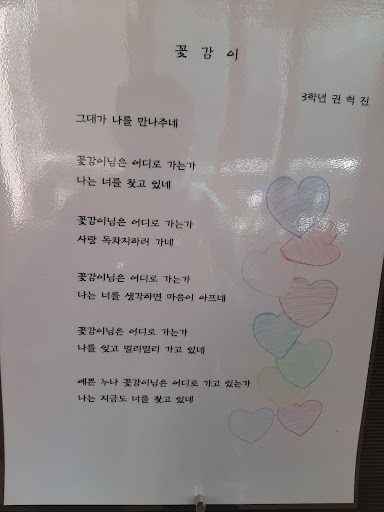 꽃 감 이
3학년 권 혁 진
그대가 나를 만나주네
꽃감이님은 어디로 가는가
나는 너를 찾고 있네
꽃감이님은 어디로 가는가
사랑 독차지하러 가네
꽃감이님은 어디로 가는가
나는 너를 생각하면 마음이 아프네
꽃감이님은 어디로 가는가
나를 잊고 멀리멀리 가고 있네
예쁜 누나 꽃감이님은 어디로 가고 있는가
나는 지금도 너를 찾고 있네